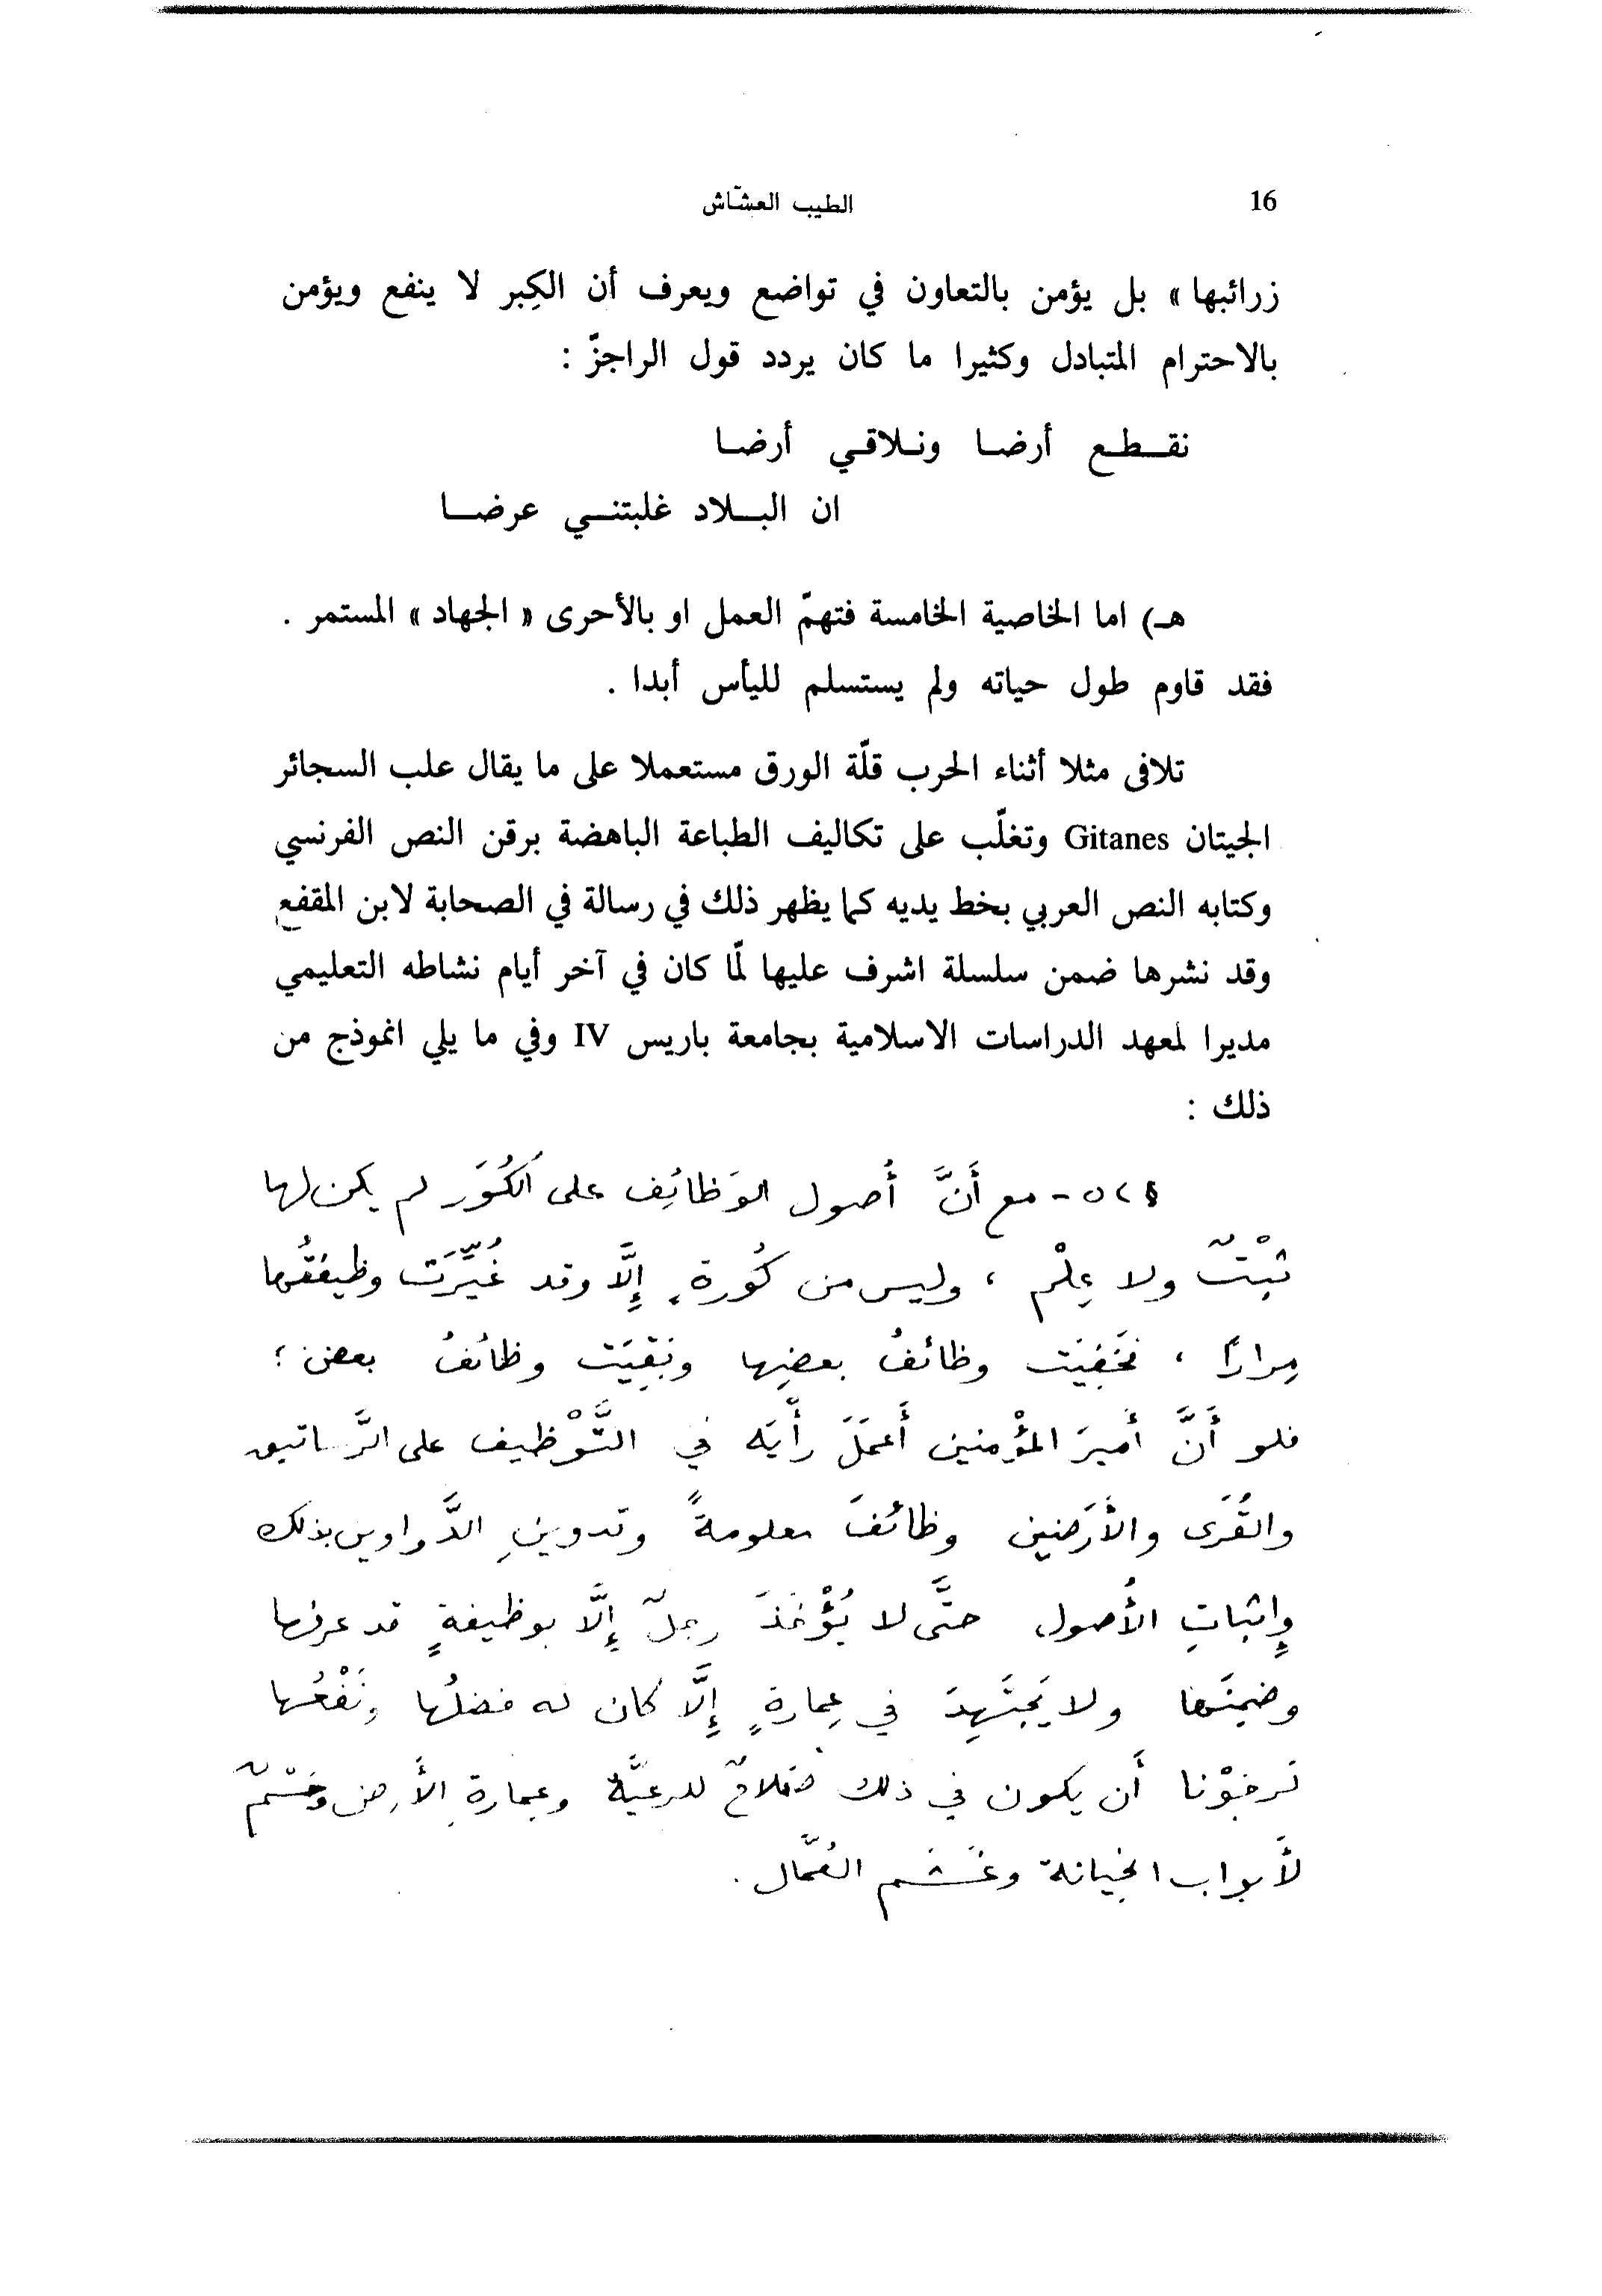 16
الطيب العشّاش
زرائبها » بل يؤمن بالتعاون في تواضع ويعرف أن الكِبر لا ينفع ويؤمن
بالاحترام المتبادل وكثيرا ما كان يردد قول الراجزّ :
نقـطـع أرضـا ونـلاقـي أرضـا
ان البـلاد غلبتنـي عرضـا
هـ) اما الخاصية الخامسة فتهمّ العمل او بالأحرى « الجهاد » المستمر .
فقد قاوم طول حياته ولم يستسلم لليأس أبدا .
تلافى مثلا أثناء الحرب قلّة الورق مستعملا على ما يقال علب السجائر
الجيتان Gitanes وتغلّب على تكاليف الطباعة الباهضة برقن النص الفرنسي
وكتابه النص العربي بخط يديه كما يظهر ذلك في رسالة في الصحابة لابن المقفع
وقد نشرها ضمن سلسلة اشرف عليها لمّا كان في آخر أيام نشاطه التعليمي
مديرا لمعهد الدراسات الاسلامية بجامعة باريس IV وفي ما يلي انموذج من
ذلك :
- مع أَنَّ أُصول الوَظائِف على الكُوَر لم يكن لها
ثَبْتٌ ولا عِلْم ، وليس من كُورةٍ إِلَّا وقد غُيِّرَت وظيفتُها
مِرارًا ، فخَفِيَت وظائفُ بعضِها وبَقِيَت وظائفُ بعض ؛
فلو أَنَّ أَميرَ المؤْمِنين أَعمَلَ رأْيَه في التَّوْظيف على الرَّساتيق
والقُرَى والأَرَضين وظائفَ معلومةً وتدوينِ الدَّواوين بذلك
وإِثباتِ الأُصول حتَّى لا يُؤْخَذَ رجلٌ إِلَّا بوظيفةٍ قد عرفها
وضَمِنَها ولا يَجتَهِدَ في عِمارةٍ إِلَّا كان له فضلُها ونَفْعُها
لرجَوْنا أَن يكون في ذلك صَلاحٌ للرعيَّة وعِمارةِ الأَرض وحَسْمٌ
لأَبواب الخِيانة وغَشَم العُمَّال .